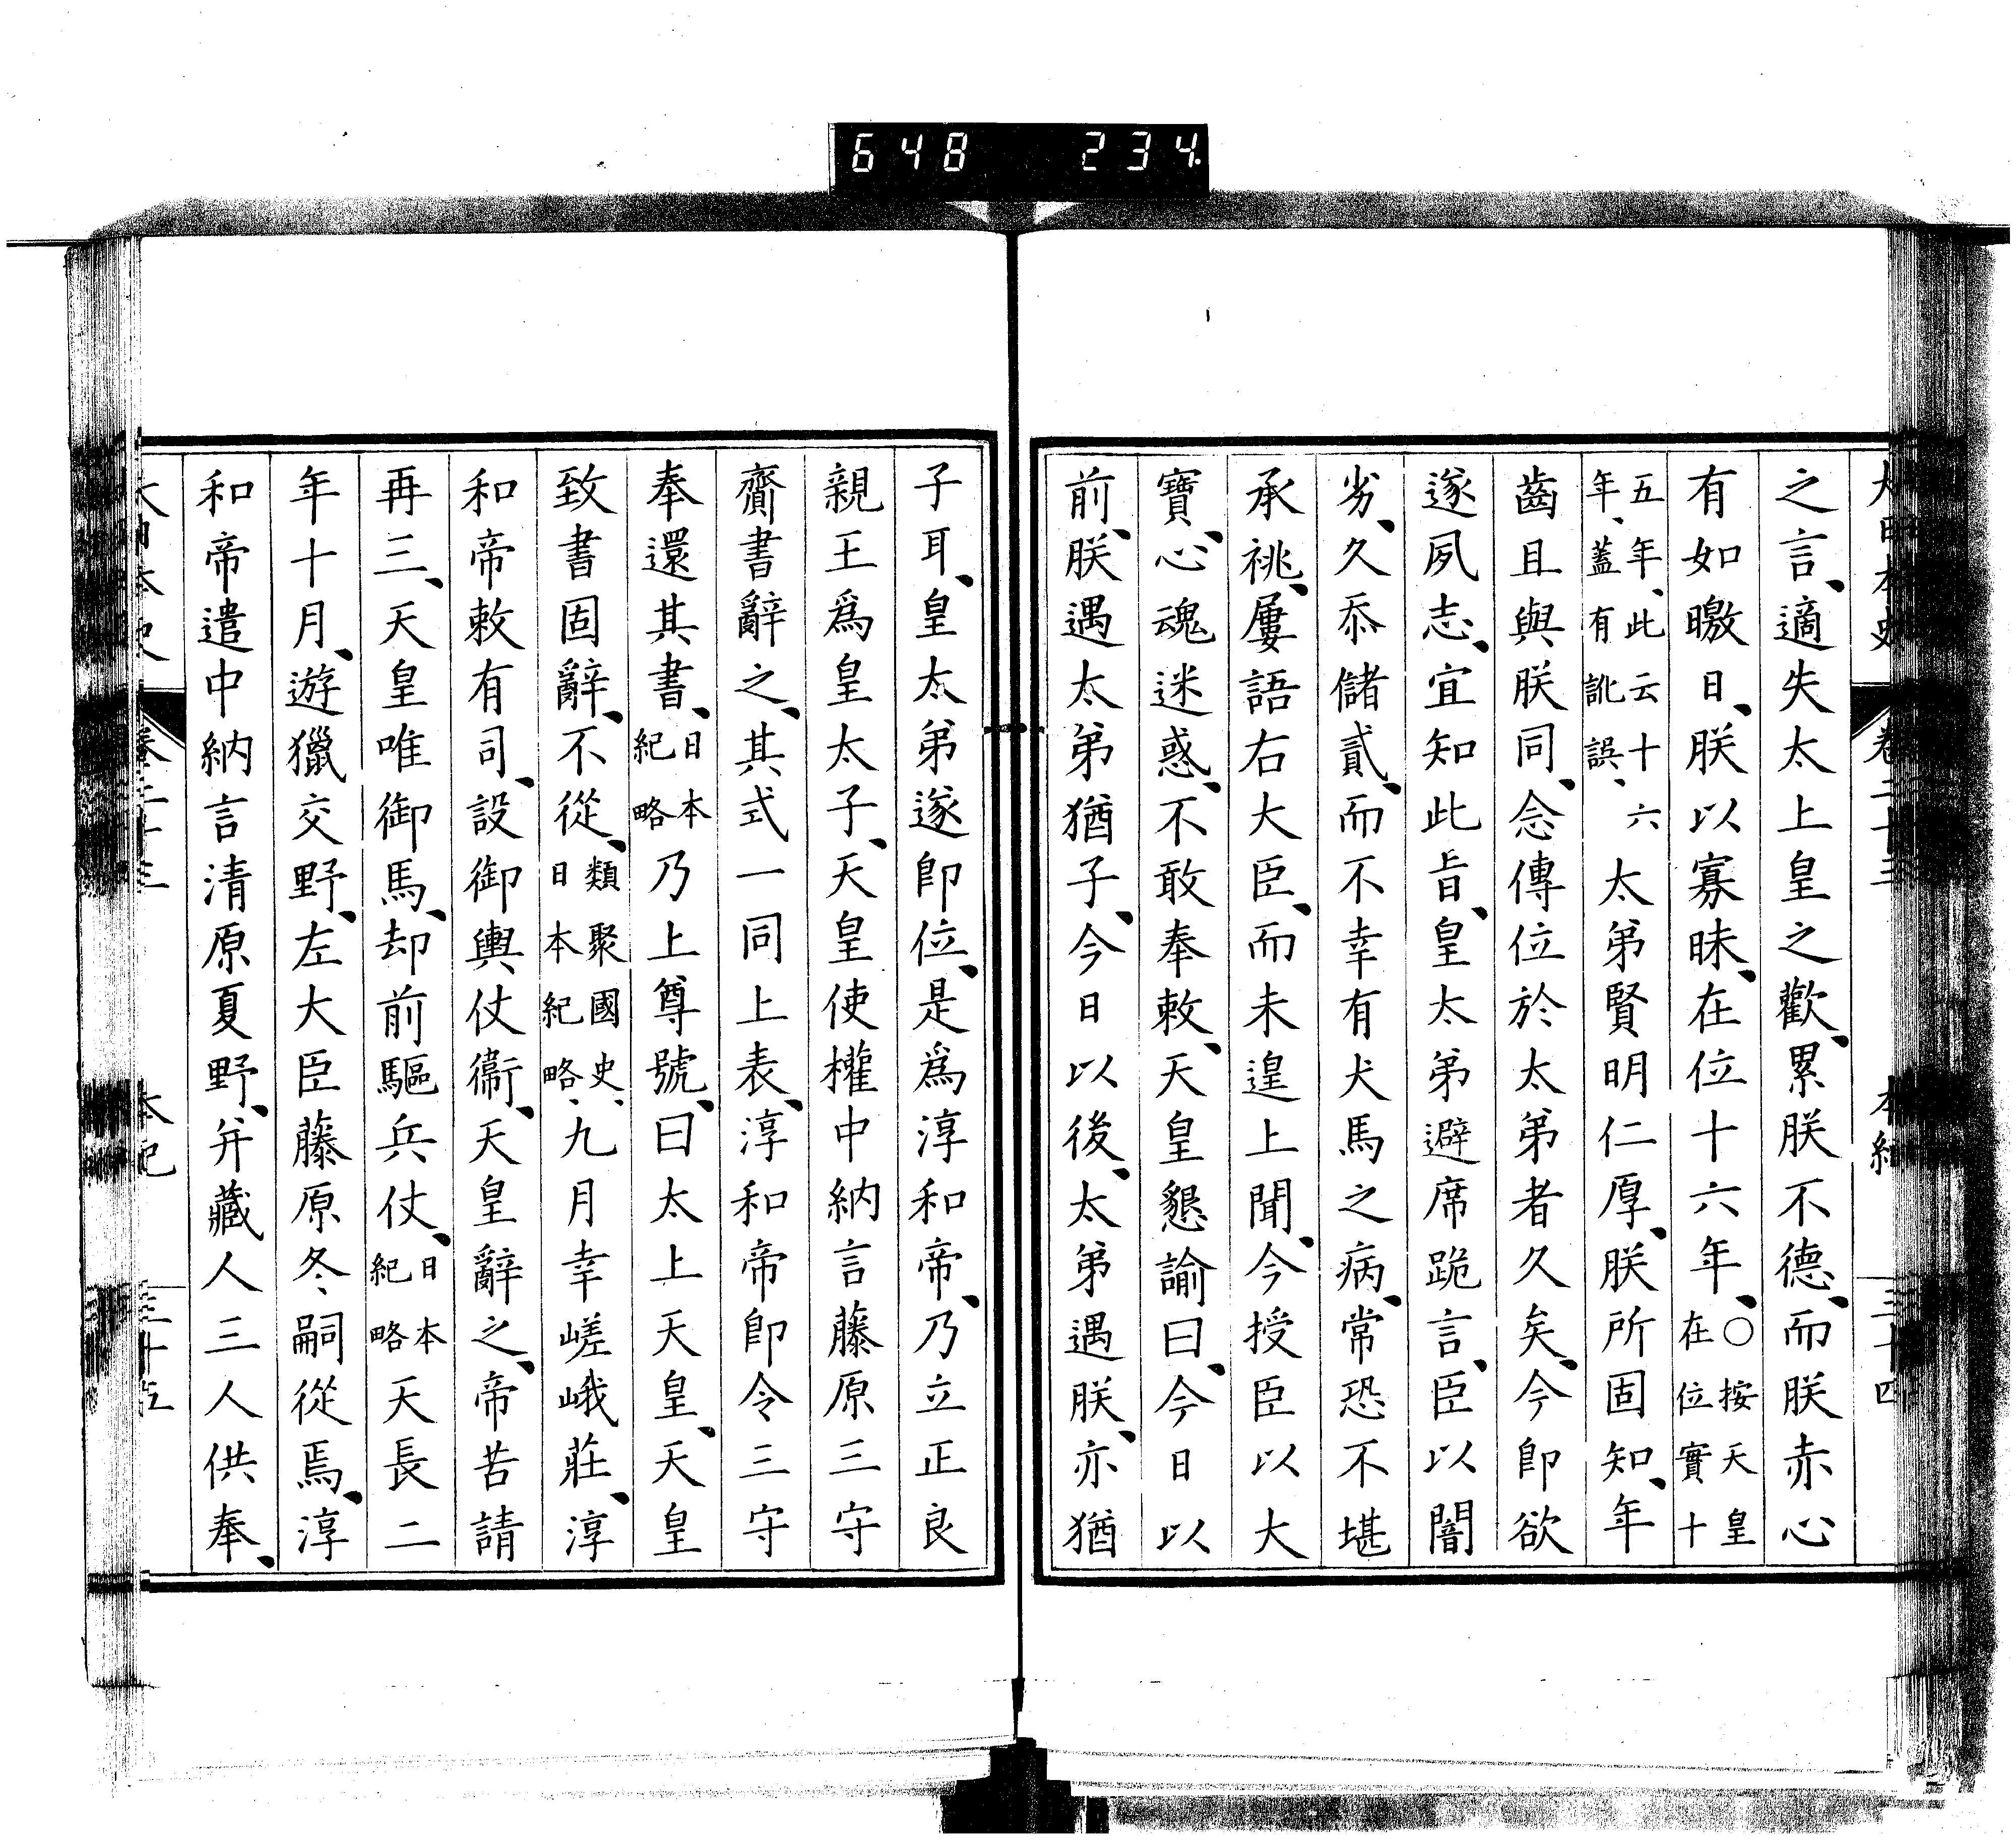 648 234
大日本史 卷二十三 本紀 三十四
之言、適失太上皇之歡、累朕不德、而朕赤心
有如曒日、朕以寡昧、在位十六年、〇按天皇在位實十
五年、此云十六年、蓋有訛誤、太弟賢明仁厚、朕所固知、年
齒且與朕同、念傳位於太弟者久矣、今卽欲
遂夙志、宜知此旨、皇太弟避席跪言、臣以闇
劣、久忝儲貳、而不幸有犬馬之病、常恐不堪
承祧、屢語右大臣、而未遑上聞、今授臣以大
寶、心魂迷惑、不敢奉敕、天皇懇諭曰、今日以
前、朕遇太弟猶子、今日以後、太弟遇朕、亦猶
子耳、皇太弟遂卽位、是爲淳和帝、乃立正良
親王爲皇太子、天皇使權中納言藤原三守
齎書辭之、其式一同上表、淳和帝卽令三守
奉還其書、日本紀略乃上尊號、曰太上天皇、天皇
致書固辭、不從、類聚國史、日本紀略、九月幸嵯峨莊、淳
和帝敕有司、設御輿仗衞、天皇辭之、帝苦請
再三、天皇唯御馬、却前驅兵仗、日本紀略天長二
年十月、遊獵交野、左大臣藤原冬嗣從焉、淳
和帝遣中納言清原夏野、幷藏人三人供奉、
大日本史 卷二十三 本紀 三十五